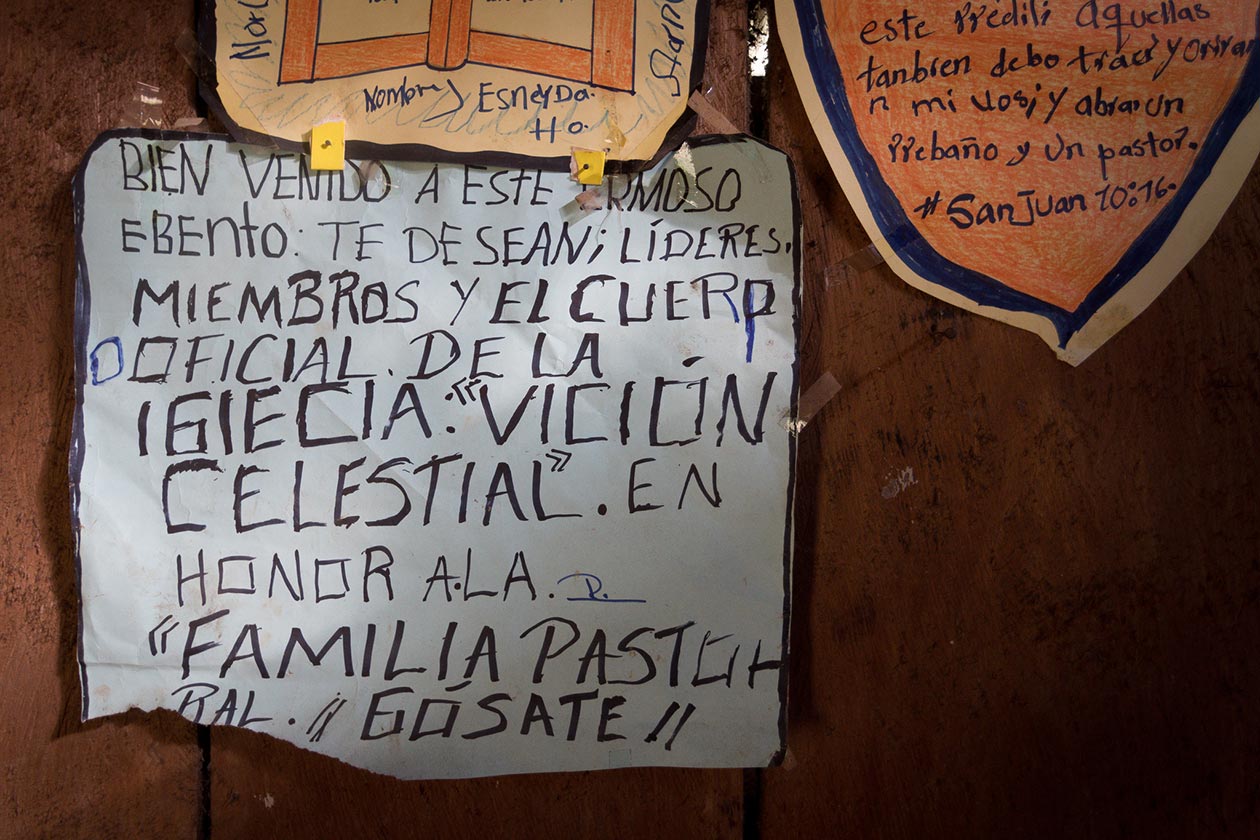 Nombre) Esneyda.
Ho.
BIEN VENIDO A ESTE ERMOSO
EBENTO: TE DESEAN; LÍDERES.
MIEMBROS Y EL CUERP
O OFICIAL. DE LA
IGIECIA: "VICIÓN
CELESTIAL". EN
HONOR A.LA. P.
"FAMILIA PASTO
RAL. " GÓSATE "
este predili aquellas
tanbren debo traer y
n mi vos; y abra un
Prebaño y un pastor.
# San Juan 10:16.